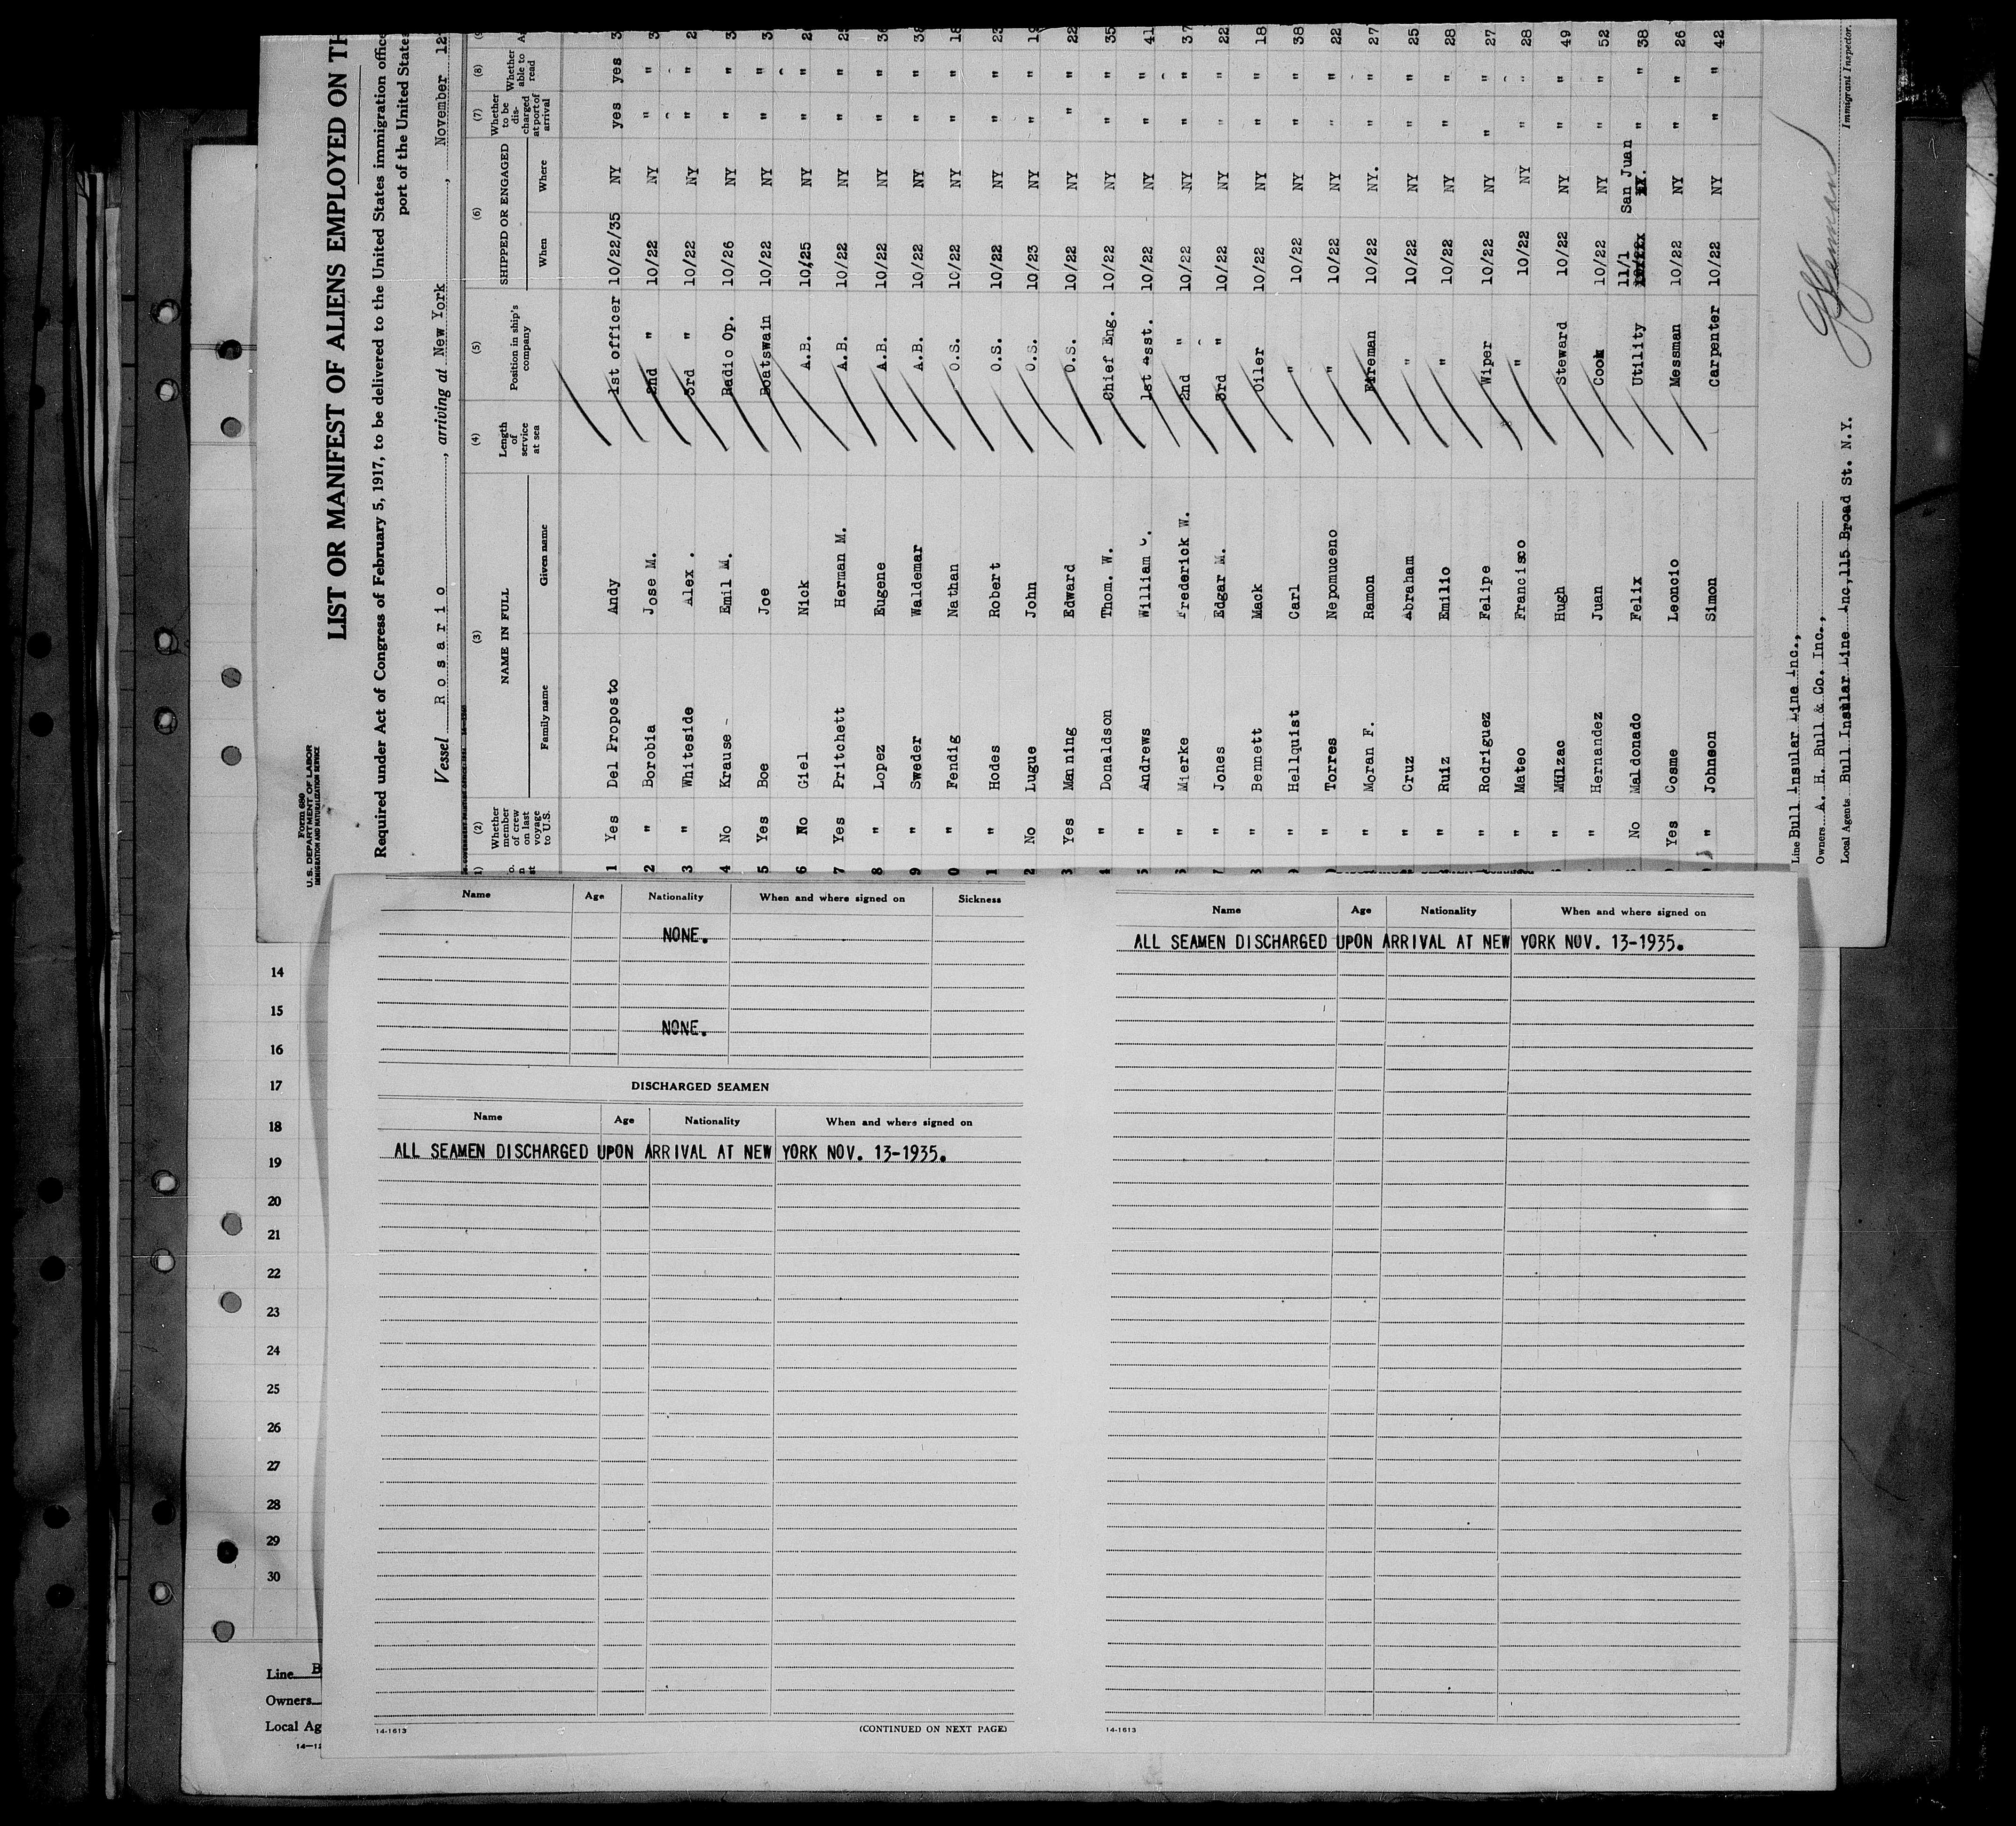 Form 680
U.S. DEPARTMENT OF LABOR
IMMIGRATION AND NATURALIZATION SERVICE
LIST OR MANIFEST OF ALIENS EMPLOYED ON TH
Required under Act of Congress of February 5, 1917, to be delivered to the United States immigration office
port of the United States
Vessel Rosario, arriving at New York, November 12
(2) (3) (4) (5) (6) (7) (8)
Whether member of crew on last voyage to U.S. NAME IN FULL Family name Given name Length of service at sea Position in ship's company SHIPPED OR ENGAGED When Where Whether to be discharged at port of arrival Whether able to read
1 Yes Del Proposto Andy 1st officer 10/22/35 NY yes yes 3
2 " Borobia Jose M. 2nd " 10/22 NY " " 3
3 " Whiteside Alex. 3rd " 10/22 NY " " 2
4 No Krause - Emil M. Radio Op. 10/26 NY " " 3
5 Yes Boe Joe Boatswain 10/22 NY " " 3
6 No Giel Nick A.B. 10/25 NY " " 2
7 Yes Pritchett Herman M. A.B. 10/22 NY " " 25
8 " Lopez Eugene A.B. 10/22 NY " " 36
9 " Sweder Waldemar A.B. 10/22 NY " " 38
0 " Fendig Nathan O.S. 10/22 NY " " 18
1 " Hodes Robert O.S. 10/22 NY " " 23
2 No Lugue John O.S. 10/23 NY " " 19
3 Yes Manning Edward O.S. 10/22 NY " " 22
4 " Donaldson Thom. W. Chief Eng. 10/22 NY " " 35
5 " Andrews William C. 1st Asst. 10/22 NY " " 41
6 " Mierke Frederick W. 2nd " 10/22 NY " " 37
7 " Jones Edgar M. 3rd " 10/22 NY " " 22
8 " Bennett Mack Oiler 10/22 NY " " 18
9 " Hellquist Carl " 10/22 NY " " 38
0 " Torres Nepomuceno " 10/22 NY " " 22
" Moran F. Ramon Fireman 10/22 NY. " " 27
" Cruz Abraham " 10/22 NY " " 25
" Ruiz Emilio " 10/22 NY " " 28
" Rodriguez Felipe Wiper 10/22 NY " " 27
" Mateo Francisco " 10/22 NY " " 28
" Mulzac Hugh Steward 10/22 NY " " 49
" Hernandez Juan Cook 10/22 NY " " 52
No Maldonado Felix Utility 11/1 San Juan " " 38
Yes Cosme Leoncio Messman 10/22 NY " " 26
" Johnson Simon Carpenter 10/22 NY " " 42
Line Bull Insular Line Inc.,
Owners A. H. Bull & Co. Inc.,
Local Agents Bull Insular Line Inc., 115 Broad St. N.Y.
Immigrant Inspector.
Name Age Nationality When and where signed on Sickness
NONE.
NONE.
DISCHARGED SEAMEN
Name Age Nationality When and where signed on
ALL SEAMEN DISCHARGED UPON ARRIVAL AT NEW YORK NOV. 13-1935.
14-1613 (CONTINUED ON NEXT PAGE)
Name Age Nationality When and where signed on
ALL SEAMEN DISCHARGED UPON ARRIVAL AT NEW YORK NOV. 13-1935.
14-1613
14
15
16
17
18
19
20
21
22
23
24
25
26
27
28
29
30
Line B
Owners
Local Ag